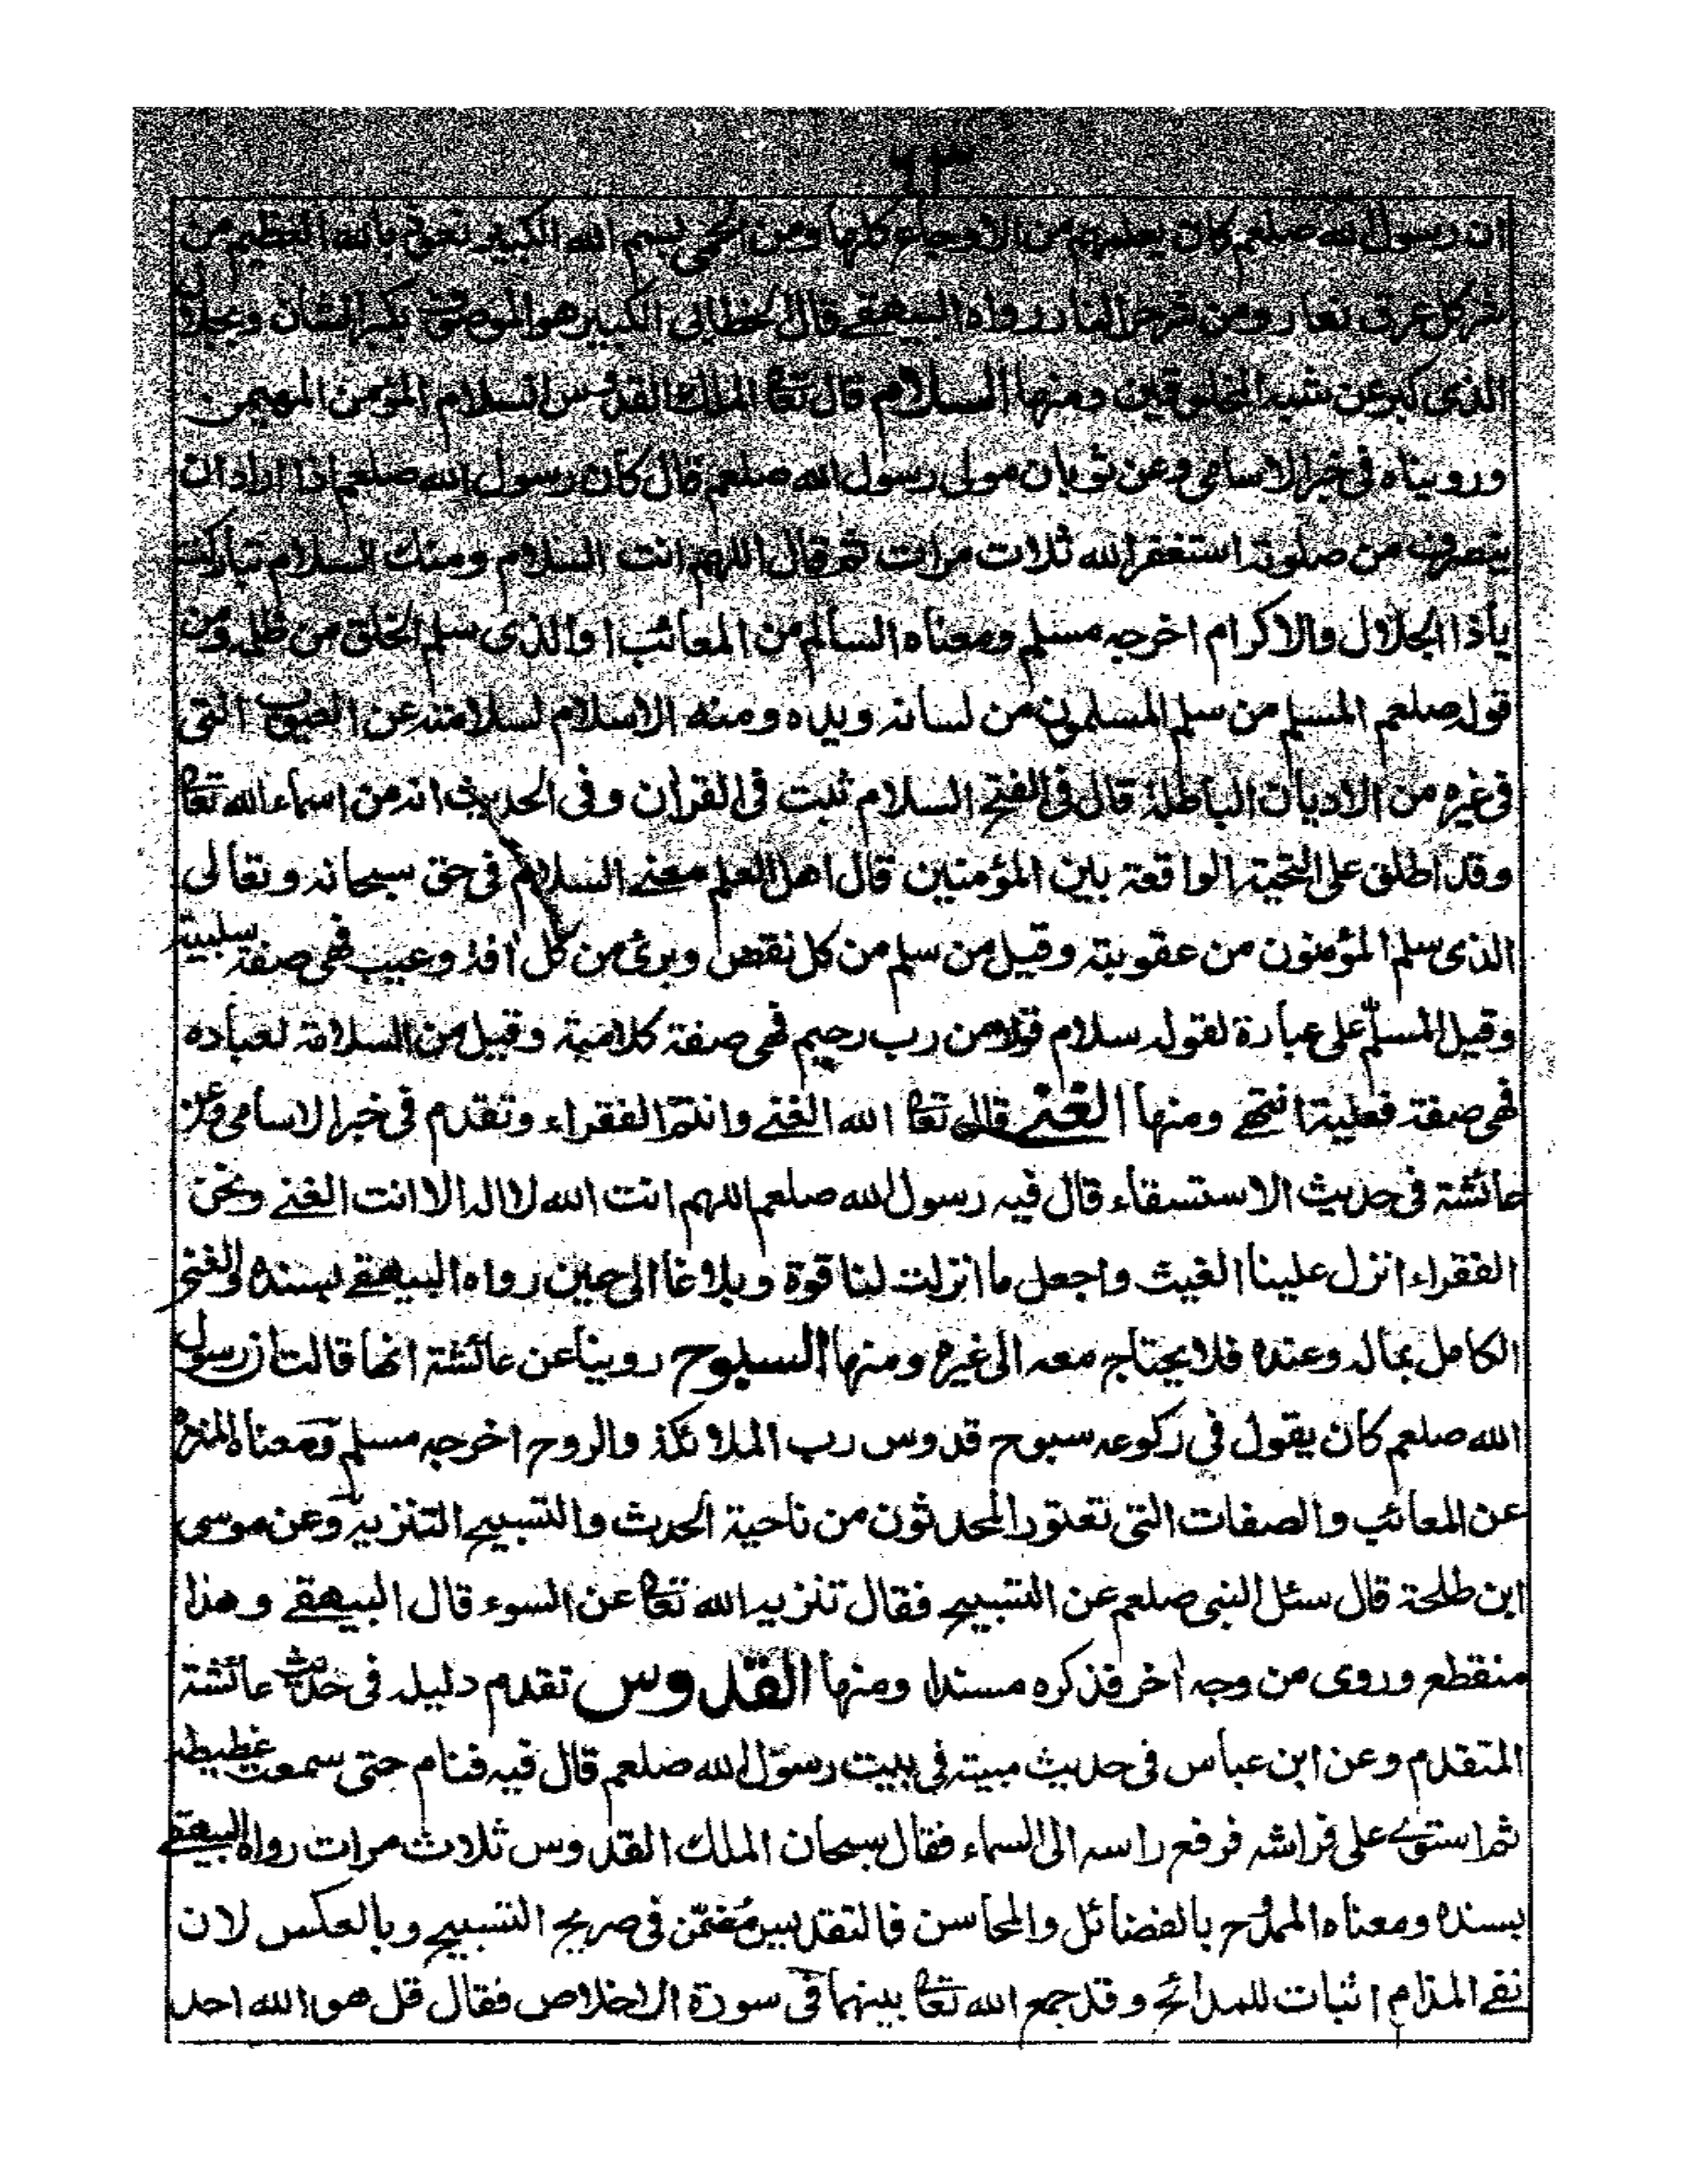 ٦٣
ان رسول الله صلعم كان يعلمهم من الاوجاع كلها ومن الحمى بسم الله الكبير نعوذ بالله العظيم من
شر كل عرق نعار ومن شر حر النار رواه البيهقے قال الخطابي الكبير هو الموصوف بكبر الشان وبجلال
الذى كبر عن شبه المخلوقين ومنها السلام قال تعا الملك القدوس السلام المؤمن المهيمن
ورويناه فى خبر الاسامى وعن ثوبان مولى رسول الله صلعم قال كان رسول الله صلعم اذا اراد ان
ينصرف من صلوته استغفر الله ثلاث مرات ثم قال اللهم انت السلام ومنك السلام تباركت
ياذا الجلال والاكرام اخرجه مسلم ومعناه السالم من المعائب او الذى سلم الخلق من ظلمه ومن
قوله صلعم المسلم من سلم المسلمون من لسانه ويده ومنه الاسلام لسلامته عن العيوب التى
فى غيره من الاديان الباطلة قال فى الفتح السلام ثبت فى القران وفى الحديث انه من اسماء الله تعا
وقد اطلق على التحية الواقعة بين المؤمنين قال اهل العلم معنے السلام فى حق سبحانه وتعالى
الذى سلم المؤمنون من عقوبته وقيل من سلم من كل نقص وبرئ من كل افة وعيب فهى صفة سلبية
وقيل المسلّم على عبارة لقوله سلام قولا من رب رحيم فهى صفة كلامية وقيل من السلامة لعباده
فهى صفة فعلية انتهے ومنها الغنے قال تعا الله الغنے وانتم الفقراء وتقدم فى خبر الاسامى وعن
عائشة فى حديث الاستسقاء قال فيه رسول الله صلعم اللهم انت الله لا اله الا انت الغنے ونحن
الفقراء انزل علينا الغيث واجعل ما انزلت لنا قوة وبلاغا الى حين رواه البيهقے بسنده والغنى
الكامل بماله وعنده فلا يحتاج معه الى غيره ومنها السبوح روينا عن عائشة انها قالت ان رسول
الله صلعم كان يقول فى ركوعه سبوح قدوس رب الملائكة والروح اخرجه مسلم ومعناه المنزه
عن المعائب والصفات التى تعتور المحدثون من ناحية الحدث والتسبيح التنزيه وعن موسى
ابن طلحة قال سئل النبى صلعم عن التسبيح فقال تنزيه الله تعا عن السوء قال البيهقے وهذا
منقطع وروى من وجه اخر فذكره مسندا ومنها القدوس تقدم دليله فى حديث عائشة
المتقدم وعن ابن عباس فى حديث مبيته فى بيت رسول الله صلعم قال فيه فنام حتى سمعت غطيطه
ثم استوے على فراشه فرفع راسه الى السماء فقال سبحان الملك القدوس ثلاث مرات رواه البيهقے
بسنده ومعناه الممدّح بالفضائل والمحاسن فالتقديس مُضمّن فى صريح التسبيح وبالعكس لان
نفے المذام اثبات للمدائح وقد جمع الله تعا بينهما فى سورة الاخلاص فقال قل هو الله احد